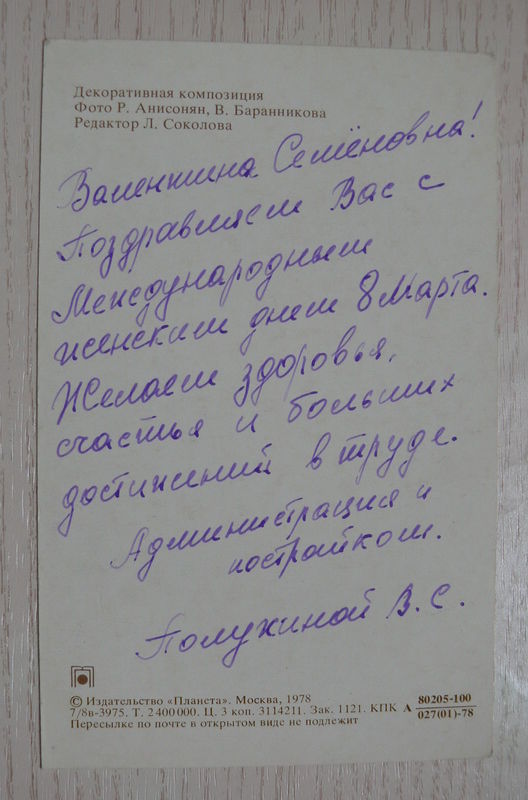 Декоративная композиция
Фото Р. Анисонян, В. Баранникова
Редактор Л. Соколова
Валентина Семёновна!
Поздравляем Вас с
Международным
женским днем 8 Марта.
Желаем здоровья,
счастья и больших
достижений в труде.
Администрация и
постройком.
Полухиной В. С.
© Издательство «Планета». Москва, 1978
7/8в-3975. Т. 2 400 000. Ц. 3 коп. 3114211. Зак. 1121. КПК А 80205-100
027(01)-78
Пересылке по почте в открытом виде не подлежит